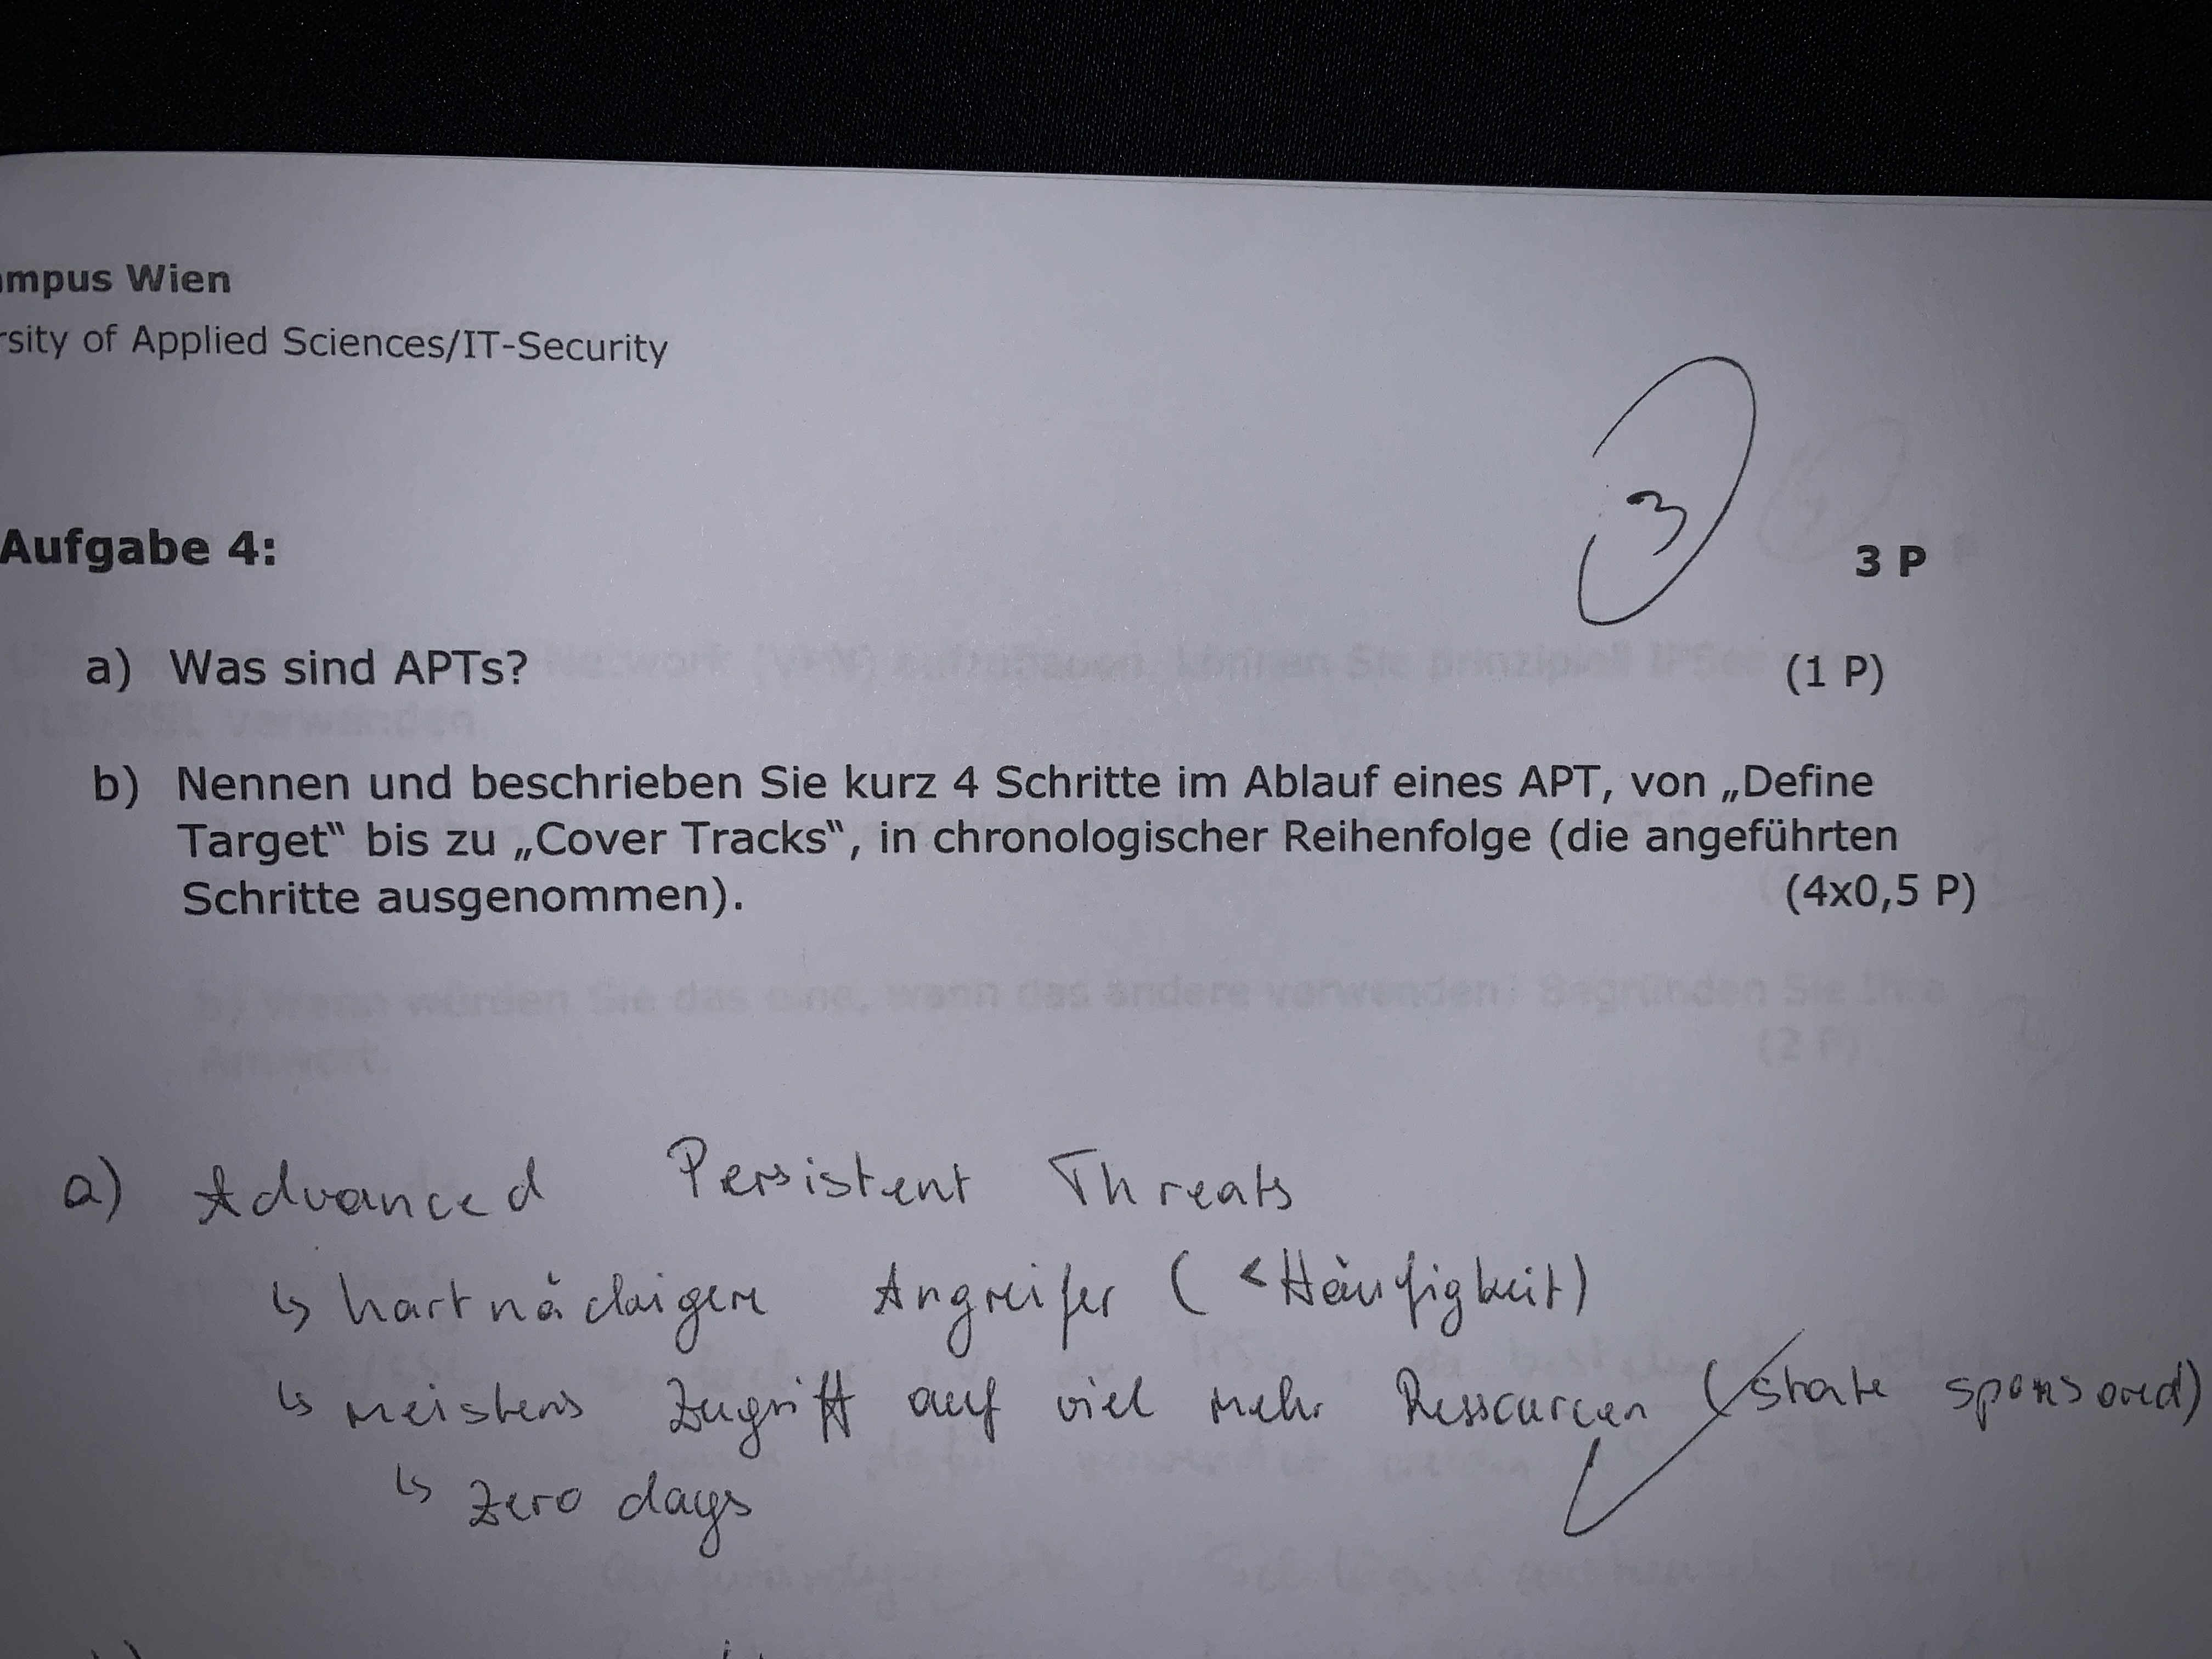 mpus Wien
rsity of Applied Sciences/IT-Security
3
Aufgabe 4:
3 P
a) Was sind APTs?
(1 P)
b) Nennen und beschrieben Sie kurz 4 Schritte im Ablauf eines APT, von „Define
Target“ bis zu „Cover Tracks“, in chronologischer Reihenfolge (die angeführten
Schritte ausgenommen).
(4x0,5 P)
b) Wann würden Sie das eine, wann das andere verwenden? Begründen Sie Ihre
Antwort.
(2 P)
a) Advanced Persistent Threats
↳ hartnäckigere Angreifer ( < Häufigkeit)
↳ meistens Zugriff auf viel mehr Ressourcen (state sponsored)
↳ Zero days